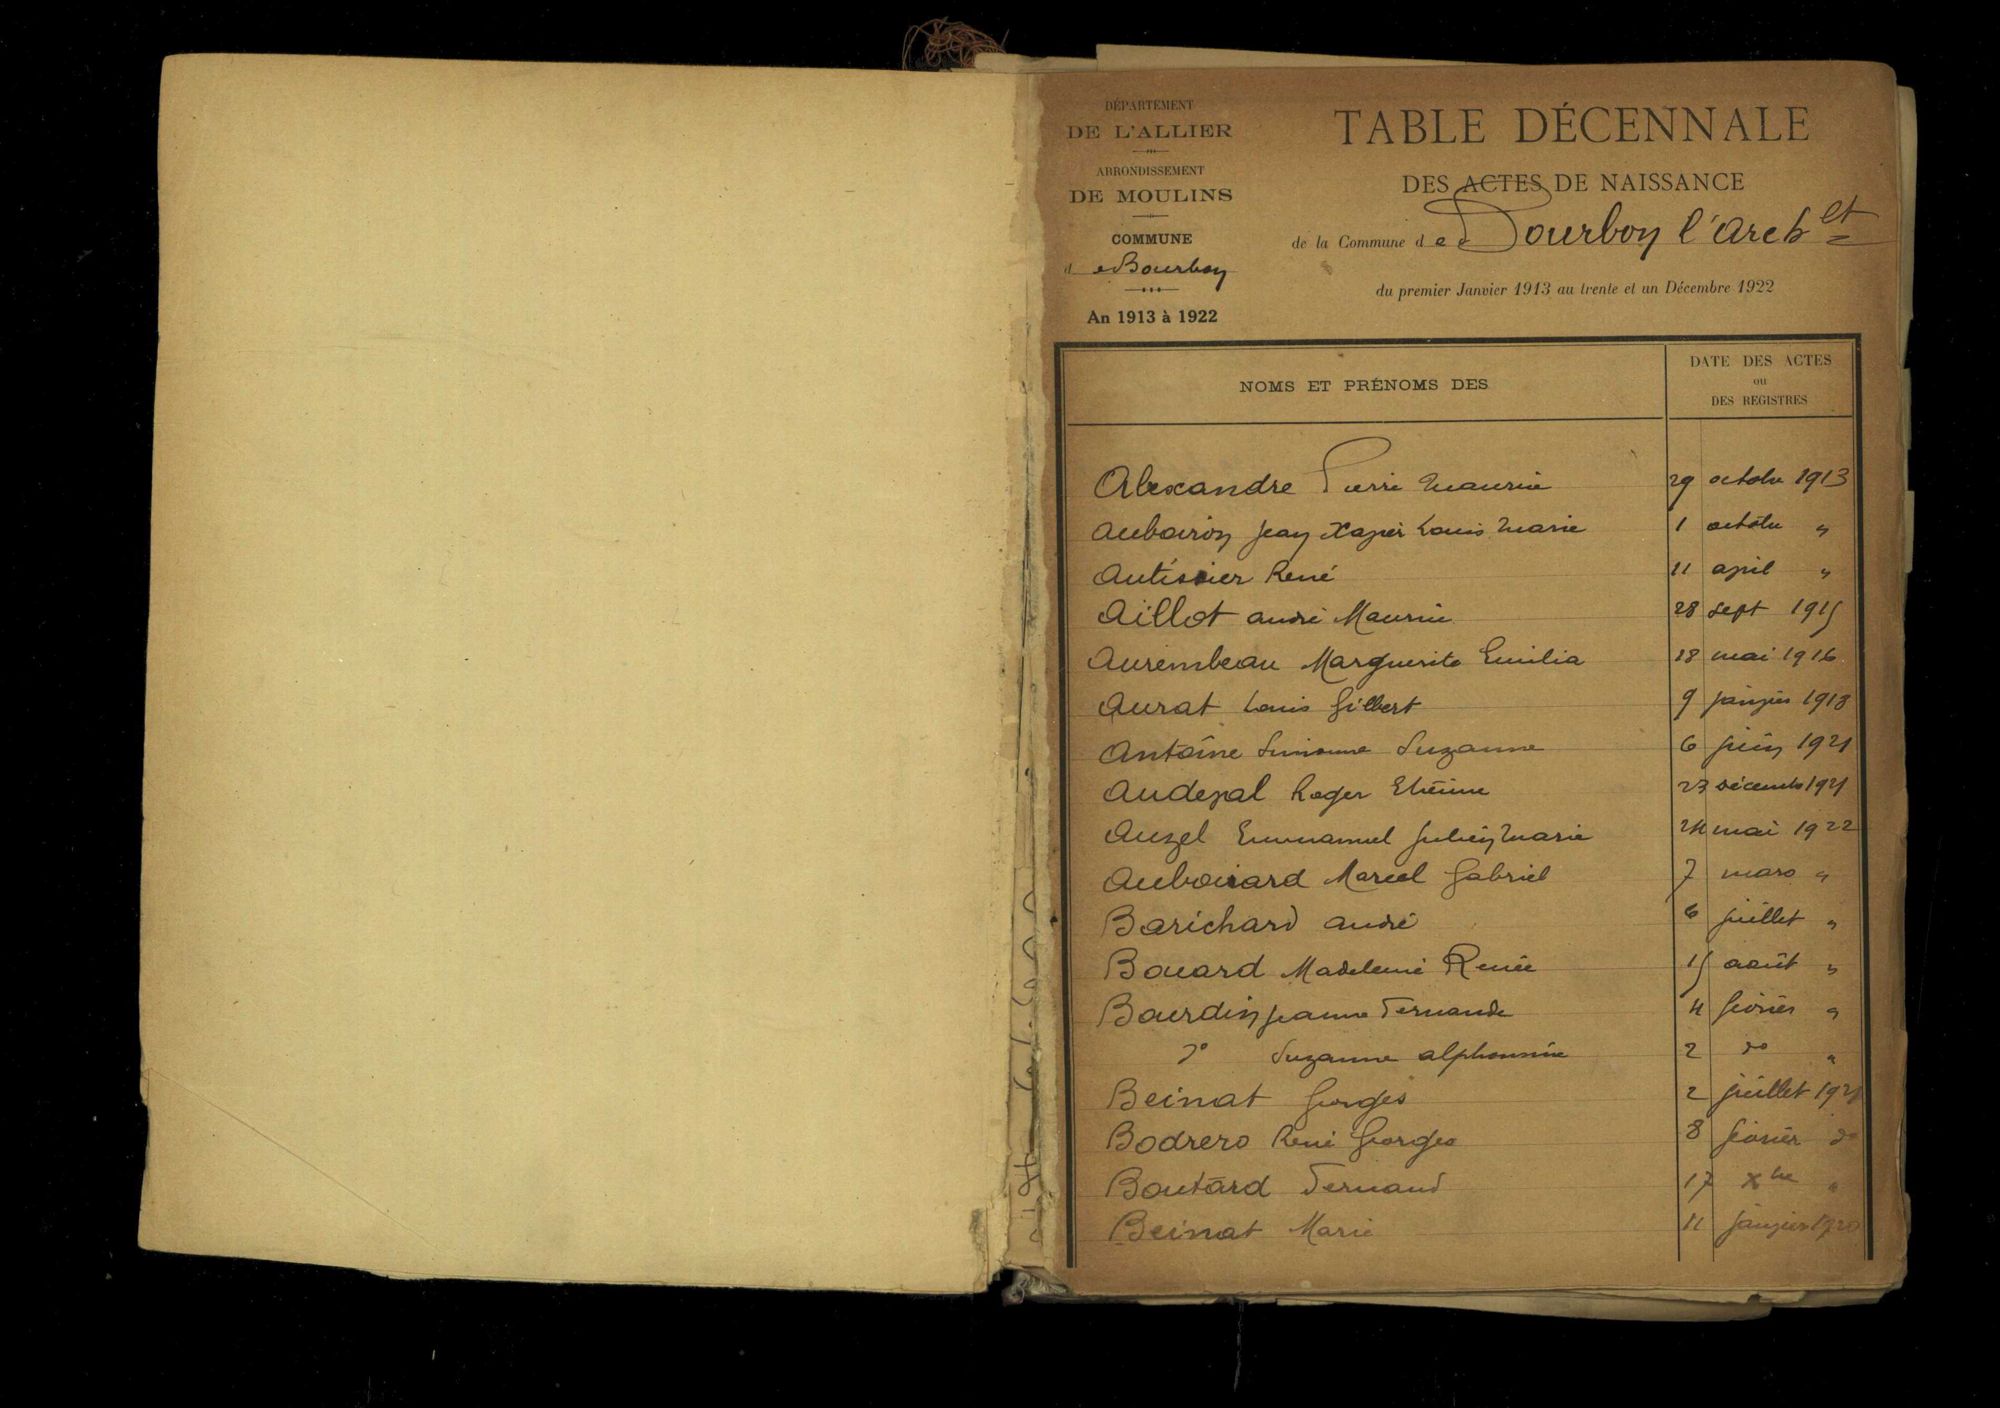 DÉPARTEMENT
DE L'ALLIER
ARRONDISSEMENT
DE MOULINS
COMMUNE
de Bourbon
An 1913 à 1922
TABLE DÉCENNALE
DES ACTES DE NAISSANCE
de la Commune de Bourbon l'Archlt
du premier Janvier 1913 au trente et un Décembre 1922
NOMS ET PRÉNOMS DES
DATE DES ACTES
ou
DES REGISTRES
Alexandre Pierre Maurice 29 octobre 1913
Auboiron Jean Xavier Louis Marie 1 octobre "
Autissier René 11 avril "
Aillot André Maurice 28 sept 1915
Aurembeau Marguerite Emilia 18 mai 1916
Aurat Louis Gilbert 9 janvier 1918
Antoine Simonne Suzanne 6 juin 1921
Audeval Roger Etienne 23 décembre 1921
Auzel Emmanuel Julien Marie 24 mai 1922
Auboirard Marcel Gabriel 7 mars "
Barichard André 6 juillet "
Bouard Madeleine Renée 15 août "
Bourdin Jeanne Fernande 4 février "
do Suzanne Alphonsine 2 do "
Beinat Georges 2 juillet 1921
Bodrero René Georges 8 février do
Boutard Fernand 17 Xbre "
Beinat Marie 11 janvier 1920